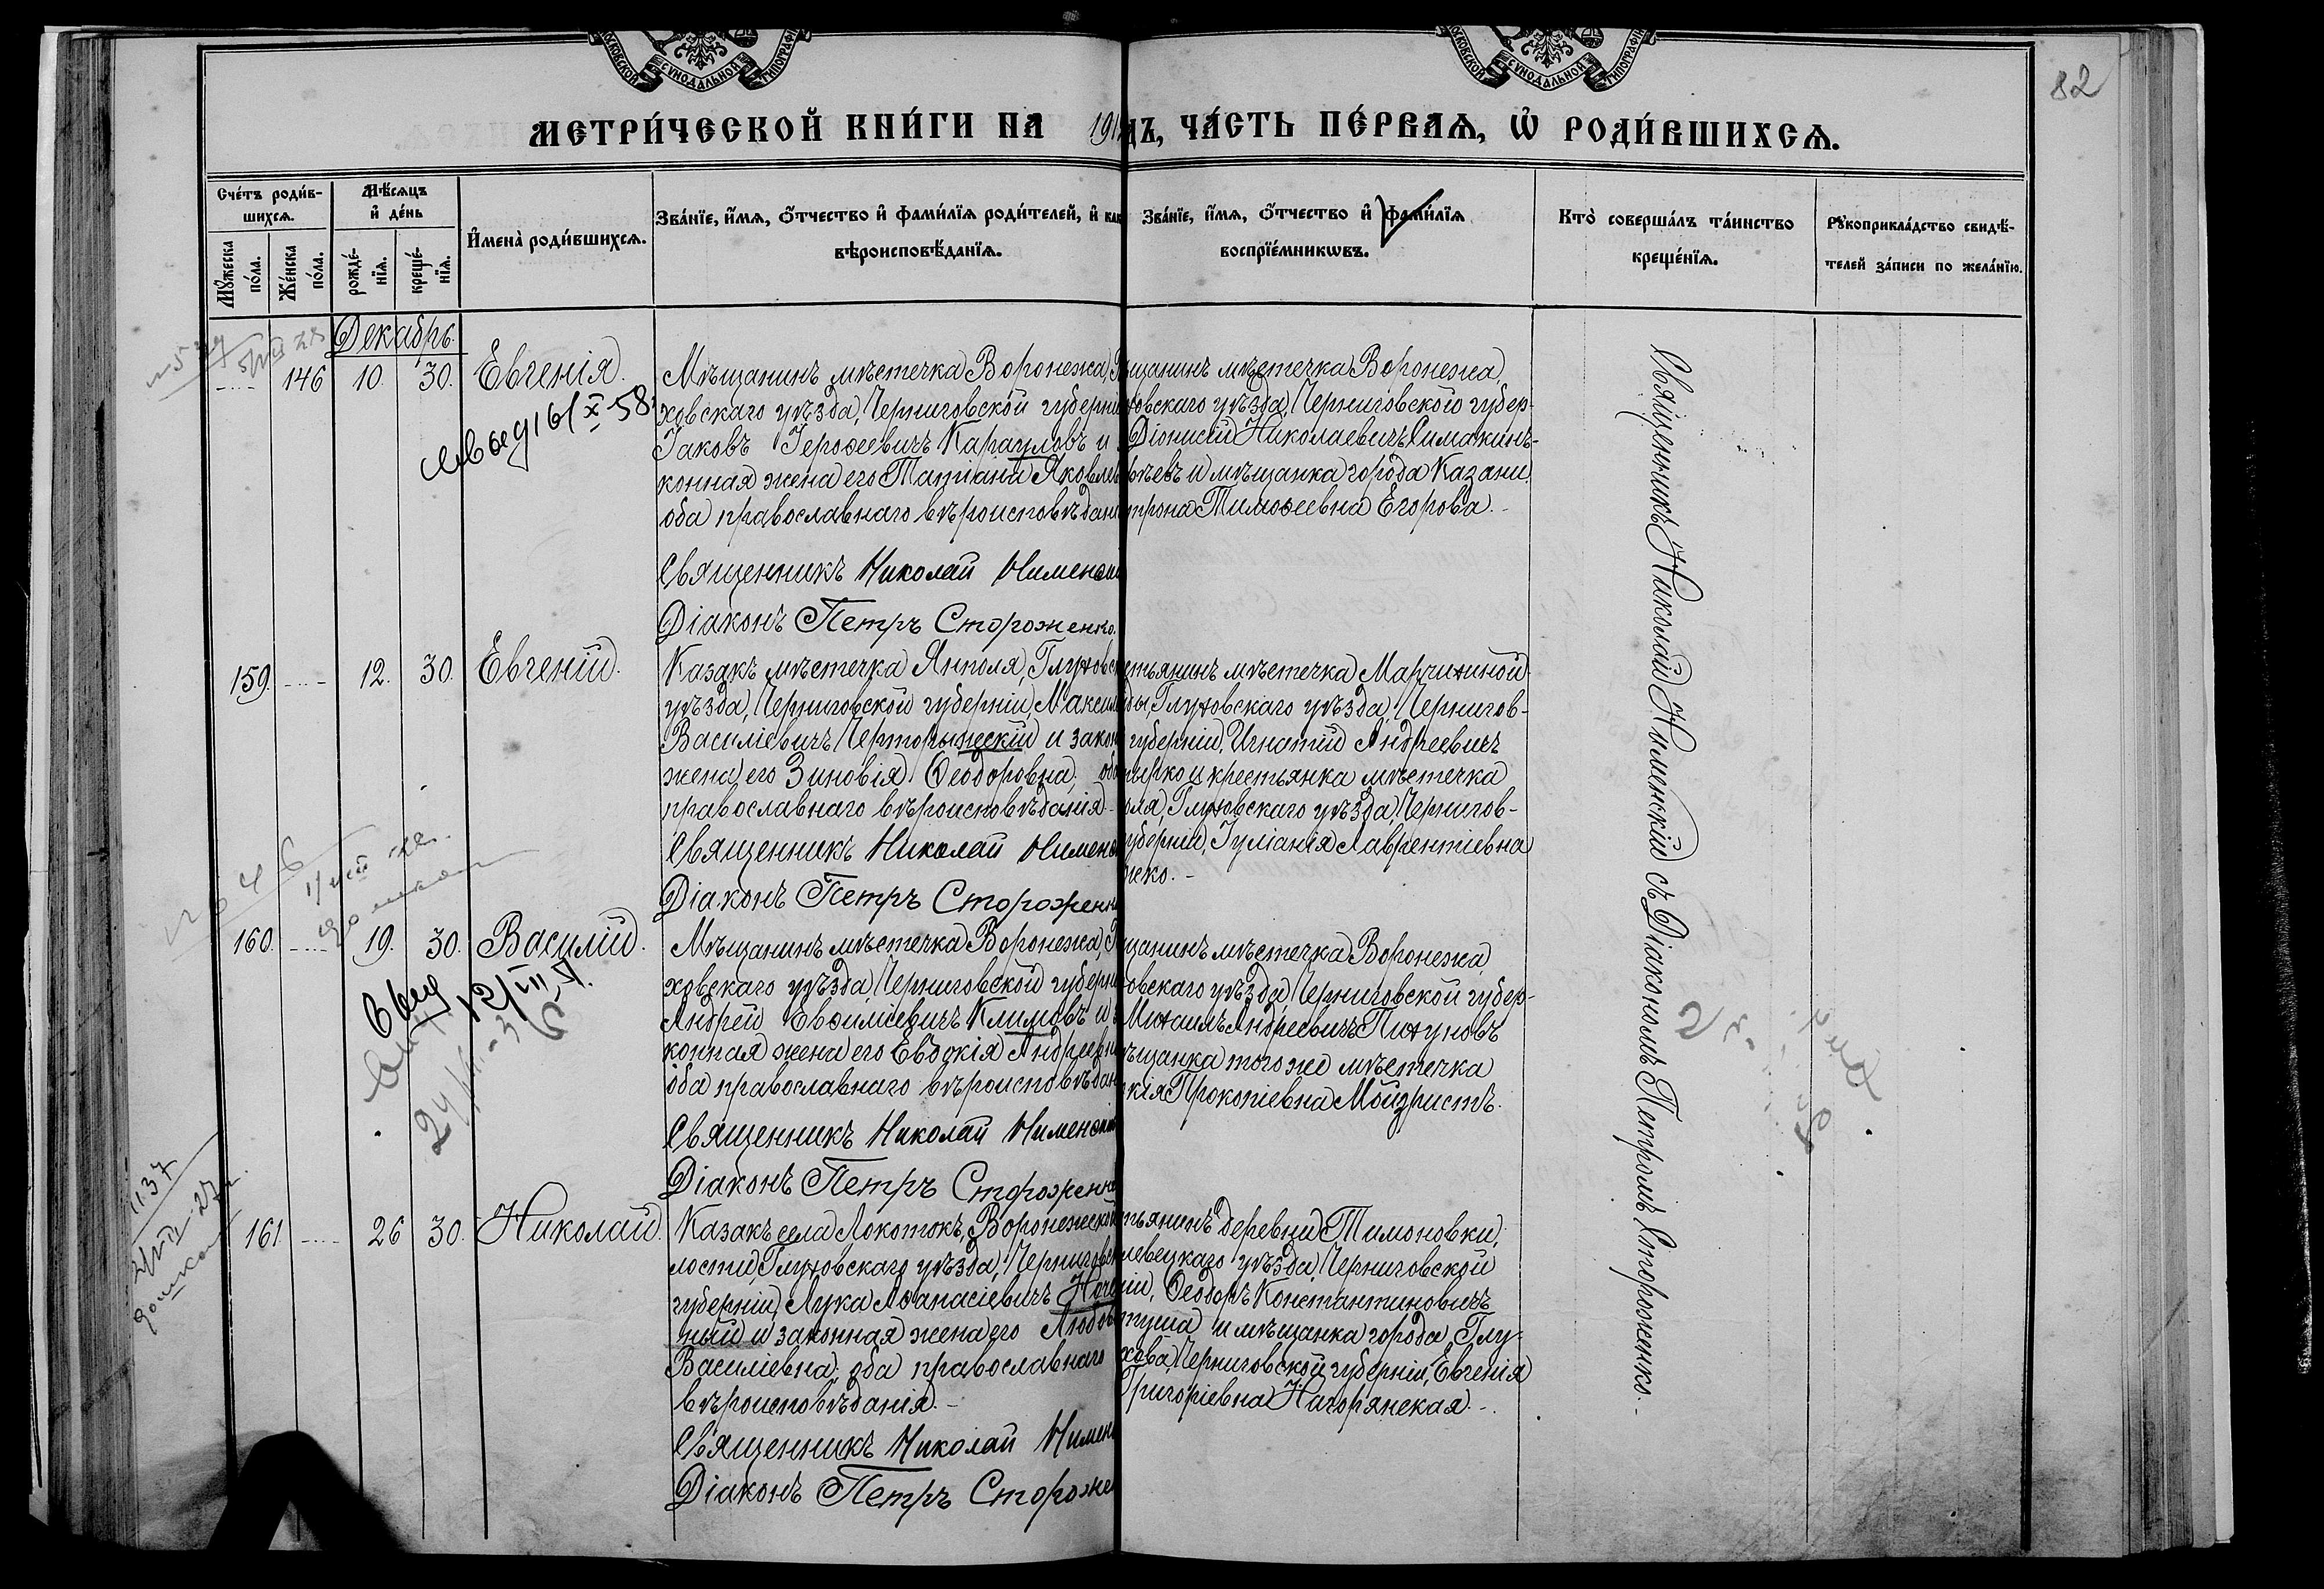 82
МЕТРИ́ЧЕСКОЙ КНИ́ГИ НА 191 ДЪ, ЧА́СТЬ ПЕ́РВАѦ, Ѡ҆ РОДИ́ВШИХСѦ.
Сче́тъ роди́в-
шихсѧ.
Мꙋ́жеска по́ла.
Же́нска по́ла.
Мѣ́сѧцъ
и҆ де́нь
рожде́-
нїѧ.
креще́-
нїѧ.
И҆мена̀ роди́вшихсѧ.
Зва́нїе, и҆́мѧ, ѻ҆́тчество и҆ фами́лїѧ роди́телей, и҆
вѣроисповѣ́данїѧ.
Зва́нїе, и҆́мѧ, ѻ҆́тчество и҆ фами́лїѧ
воспрїе́мникѡвъ.
Кто̀ соверша́лъ та́инство
креще́нїѧ.
Рꙋкоприкла́дство свидѣ́-
телей за́писи по жела́нїю.
Декабрь.
146 10. 30. Евгенія.
Мѣщанинъ мѣстечка Воронежа,
ховскаго уѣзда, Черниговской губерні
Іаковъ Іероѳеевичъ Карауловъ и
конная жена его Татіана Яковлев
оба православнаго вѣроисповѣдані
Священникъ Николай Нименскі
Діаконъ Петръ Стороженко.
щанинъ мѣстечка Воронежа,
ховскаго уѣзда, Черниговской губер-
Діонисій Николаевичъ Симакинъ-
ѣевъ и мѣщанка города Казани,
трона Тимоѳеевна Егорова.-
159. 12. 30. Евгеній.
Казакъ мѣстечка Янполя, Глуховс
уѣзда, Черниговской губерніи, Максим
Василіевичъ Черторыжскій и закон
жена его Зиновія Ѳеодоровна, оба
православнаго вѣроисповѣданія.-
Священникъ Николай Нименс
Діаконъ Петръ Стороженк
стьянинъ мѣстечка Марчихиной
ды, Глуховскаго уѣзда, Чернигов-
губерніи, Игнатій Андреевичъ
ырко и крестьянка мѣстечка
оля, Глуховскаго уѣзда, Чернигов-
губерніи, Іуліанія Лаврентіевна
нко.-
160. 19. 30. Василій.
Мѣщанинъ мѣстечка Воронежа,
ховскаго уѣзда, Черниговской губерн
Андрей Евѳиміевичъ Климовъ и
конная жена его Евдокія Андреевн
оба православнаго вѣроисповѣдан
Священникъ Николай Нименскі
Діаконъ Петръ Стороженк
щанинъ мѣстечка Воронежа,
овскаго уѣзда, Черниговской губер-
Михаилъ Андреевичъ Пихуновъ
ѣщанка того же мѣстечка
кія Прокопіевна Мойдристъ.
161 26 30. Николай.
Казакъ села Локотокъ, Воронежской
лости, Глуховскаго уѣзда, Черниговск
губерніи, Лука Аѳанасіевичъ
ный и законная жена его Любовь
Василіевна; оба православнаго
вѣроисповѣданія.-
Священникъ Николай Нимен
Діаконъ Петръ Стороже
тьянинъ деревни Тимоновки,
левецкаго уѣзда, Черниговской
ніи, Ѳеодоръ Константиновичъ
туша и мѣщанка города Глу-
хова, Черниговской губерніи, Евгенія
Григоріевна Нагорянская.-
Священникъ Николай Нименскій съ Діакономъ Петромъ Стороженко.-